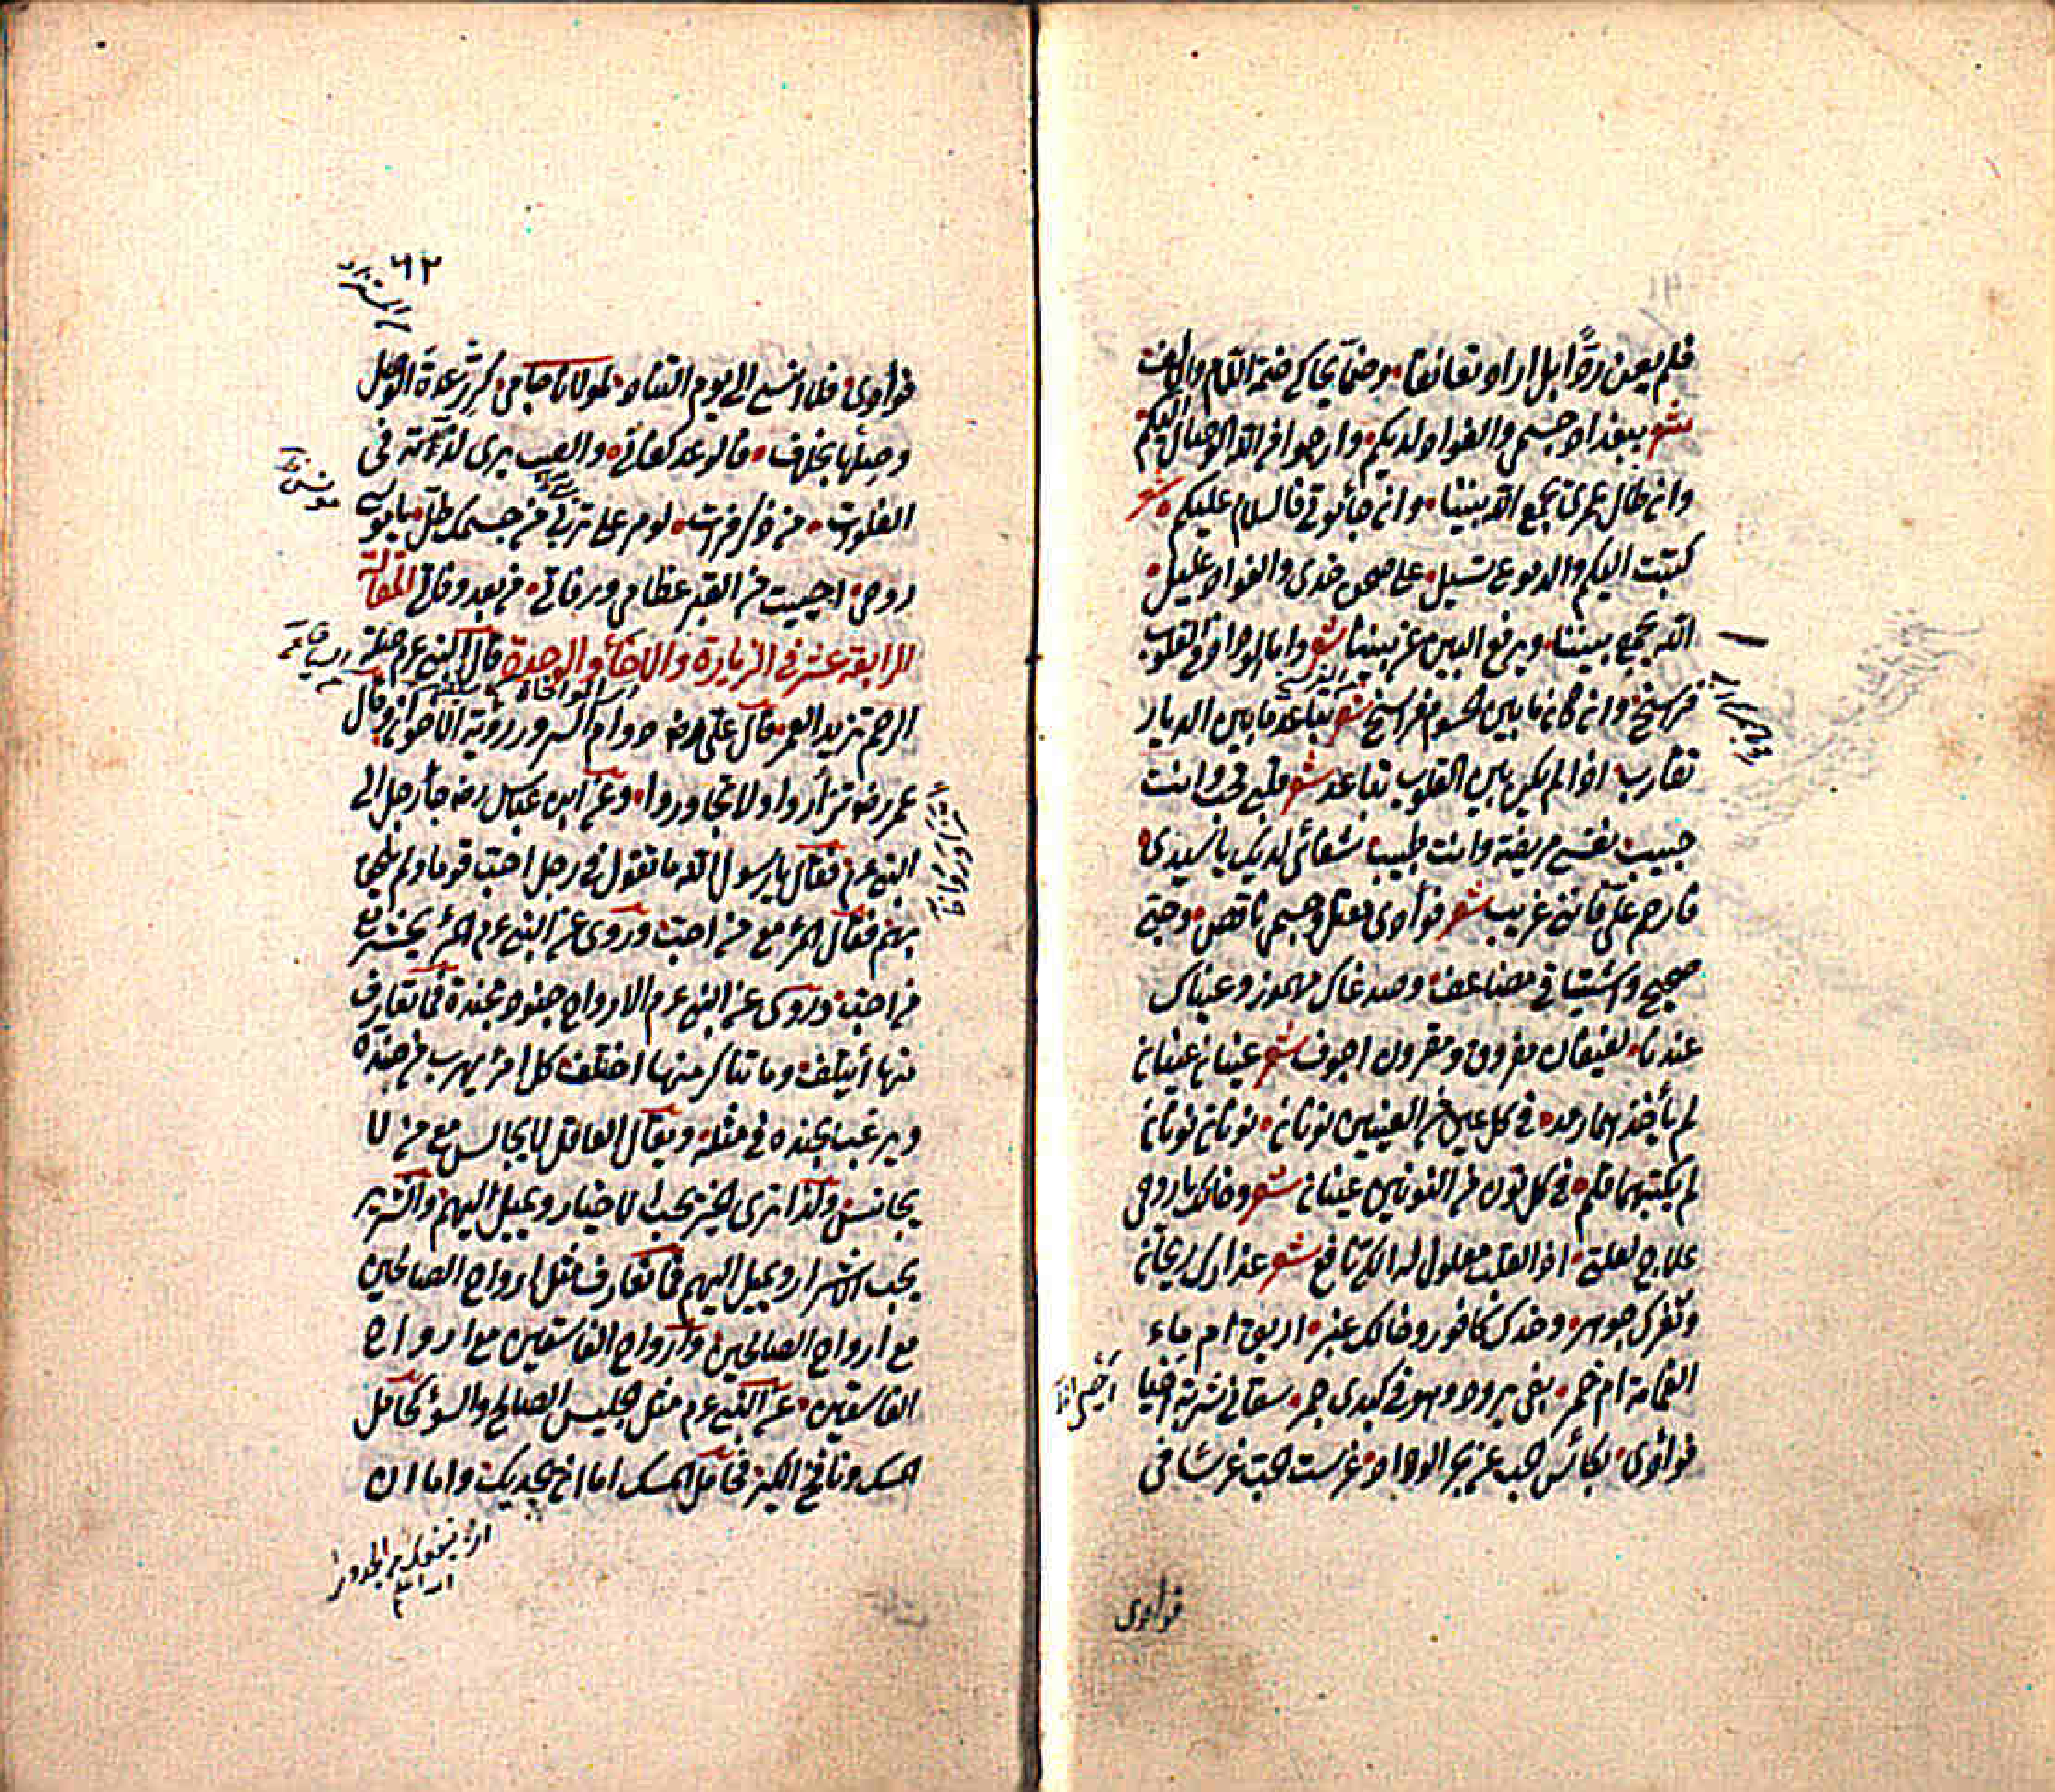 فلم يعن ردّا بل اراد تعانقا وضمّا يحاكى ضمة اللام والالف
شعر ببغداد جسمى والفواد لديكم وارجوا من الله الوصال اليكم
وان طال عمرى يجمع الله بيننا وان جاء موتى فالسلام عليكم شعر
كتبت اليكم والدموع تسيل على صحن خدى والفواد عليل
الله يجمع بيننا ويرفع البين عن بيننا شعر واما الوداد فى القلوب
فراسخ وان كان ما بين الجسوم فراسخ شعر تباعد ما بين الديار
تقارب اذا لم يكن بين القلوب تباعد شعر قلبى محب وانت
حبيب نفسى مريضة وانت طبيب شفائى لديك يا سيدى
فارحم علىّ فاننى غريب شعر فوادى معتل وجسمى ناقص وحبى
صحيح واشتياقى مضاعف وصدغاك مهموز وعيناك
عندنا لفيفان مفروق ومقرون اجوف شعر عينان عينان
لم يأخذهما رمد فى كل عين من العينين نونان نونان نونان
لم يكتبهما قلم فى كل نون من النونين عينان شعر وخالك يا روحى
علاج لعلتى اذ القلب معلول له الكى نافع شعر عذارك ريحان
وثغرك جوهر وخدك كافور وخالك عنبر اريق ام ماء
الغمامة ام خمر بفى برود وهو فى كبدى جمر سقانى شربة احيا
فوادى بكأس الحب من بحر الوداد غرست الحب غرسا فى
فوادى
٦٢
فوأدى فلا انسى الى يوم التناد لمولانا جامى كررت عدة الوصل
وصلها بخلف فالوعد كفانى والصب يرى لذته فى
الفلوات من ذكر فرات لو مر على تربى من جسمك ظل يا مونس
روحى احييت من القبر عظامى ورفاتى من بعد وفاتى المقالة
الرابعة عشر فى الزيارة والاخاء والوحدة قال النبى عم صلة
الرحم تزيد العمر قال على رضه دوام السرور رؤية الاخوان وقال
عمر رضه تزاوروا ولا تجاوروا وعن ابن عباس رضه جاء رجل الى
النبى عم فقال يا رسول الله ما تقول فى رجل احب قوما ولم يلحق
بهم فقال المرء مع من احب وروى عن النبى عم المرء يحشر مع
من احب وروى عن النبى عم والارواح جنود مجندة فما تعارف
منها أيتلف وما تناكر منها اختلف كل امرئ يهرب من ضده
ويرغب بجنده فى مثله ويقال العاقل لا يجالس مع من لا
يجانس ولذا ترى الخير يحب الاخيار ويميل اليهم والشرير
يحب الاشرار ويميل اليهم فما تعارف مثل ارواح الصالحين
مع ارواح الصالحين وارواح الفاسقين مع ارواح
الفاسقين عن النبى عم مثل الجليس الصالح والسوء كحامل
المسك ونافخ الكير فحامل المسك اما ان يجديك واما ان